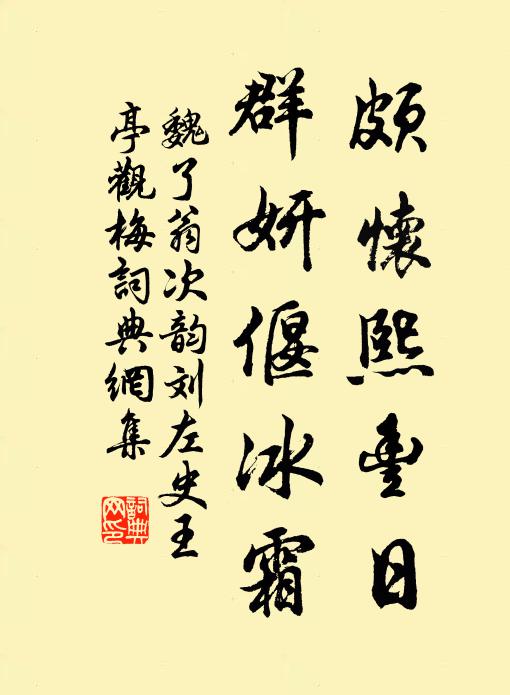 頗懷熙豐日
群妍偃冰霜
魏了翁次韵刘左史王
亭觀梅詞典網集
詞典
网印